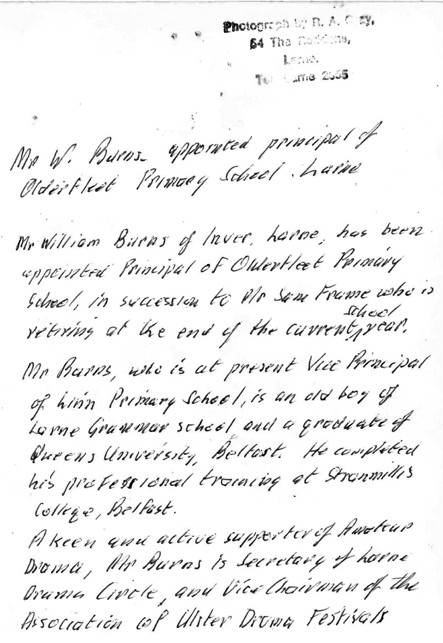 Photograph by R. A. Gray,
54 The Roddens,
Larne.
Tel. Larne 2555
Mr W. Burns appointed principal of
Olderfleet Primary School. Larne
Mr William Burns of Inver, Larne, has been
appointed Principal of Olderfleet Primary
School, in succession to Mr Sam Frame who is
retiring at the end of the current school year.
Mr Burns, who is at present Vice Principal
of Linn Primary School, is an old boy of
Larne Grammar school and a graduate of
Queens University, Belfast. He completed
his professional training at Stranmillis
College, Belfast.
A keen and active supporter of Amateur
Drama, Mr Burns is Secretary of Larne
Drama Circle, and Vice Chairman of the
Association of Ulster Drama Festivals